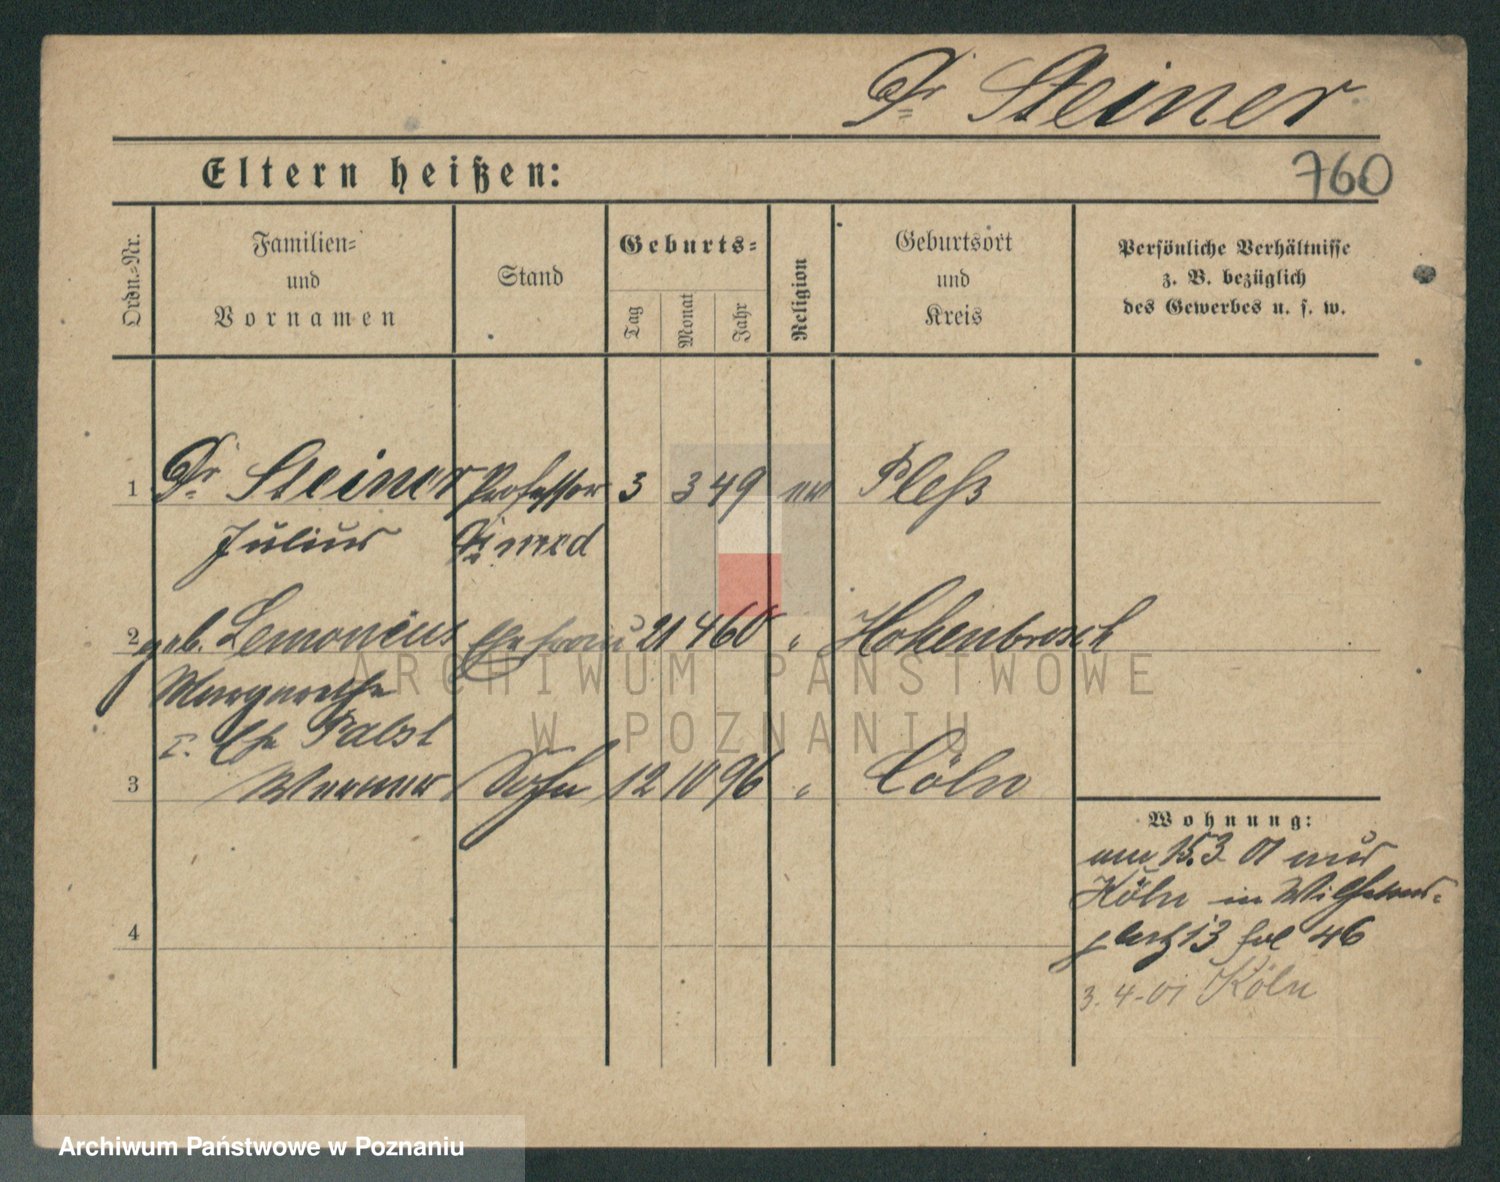 Dr Steiner
Eltern heißen:
760
Ordn.-Nr.
Familien-
und
Vornamen
Stand
Geburts-
Tag
Monat
Jahr
Religion
Geburtsort
und
Kreis
Persönliche Verhältnisse
z. B. bezüglich
des Gewerbes u. s. w.
1 Dr Steiner Professor 3 3 49 ev Pleß
Julius Dr med
2 geb. Lemonius Ehefrau 21 4 60 " Hohenbrosch
Margarethe
I. Ehe Pabst
3 Werner Sohn 12 10 96 " Cöln
Wohnung:
am 15.3 01 aus
Köln in Wilhelms-
platz 13 hol 46
4
3.4-01 Köln
ARCHIWUM PAŃSTWOWE
W POZNANIU
Archiwum Państwowe w Poznaniu